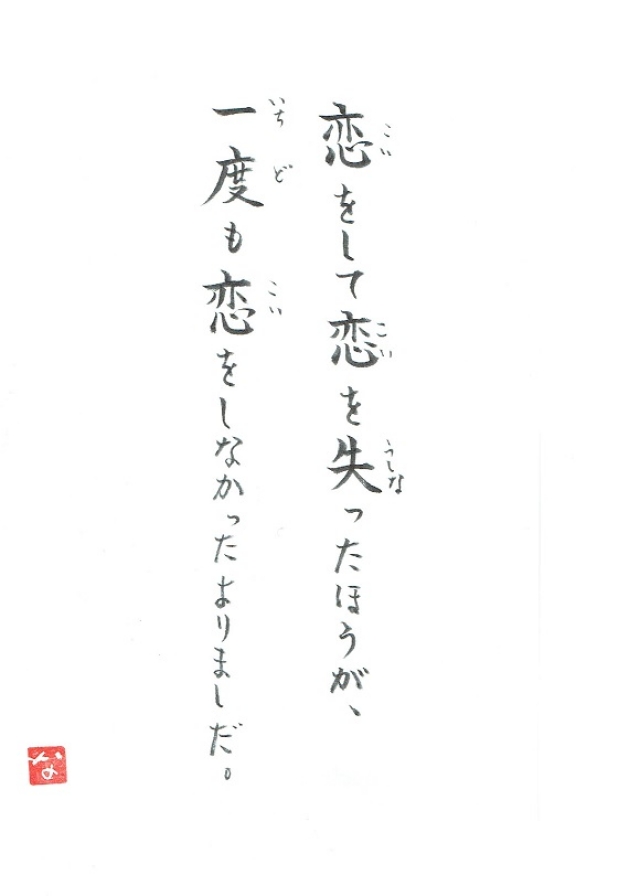 恋をして恋を失ったほうが、
こい こい うしな
一度も恋をしなかったよりましだ。
いち ど こい
な